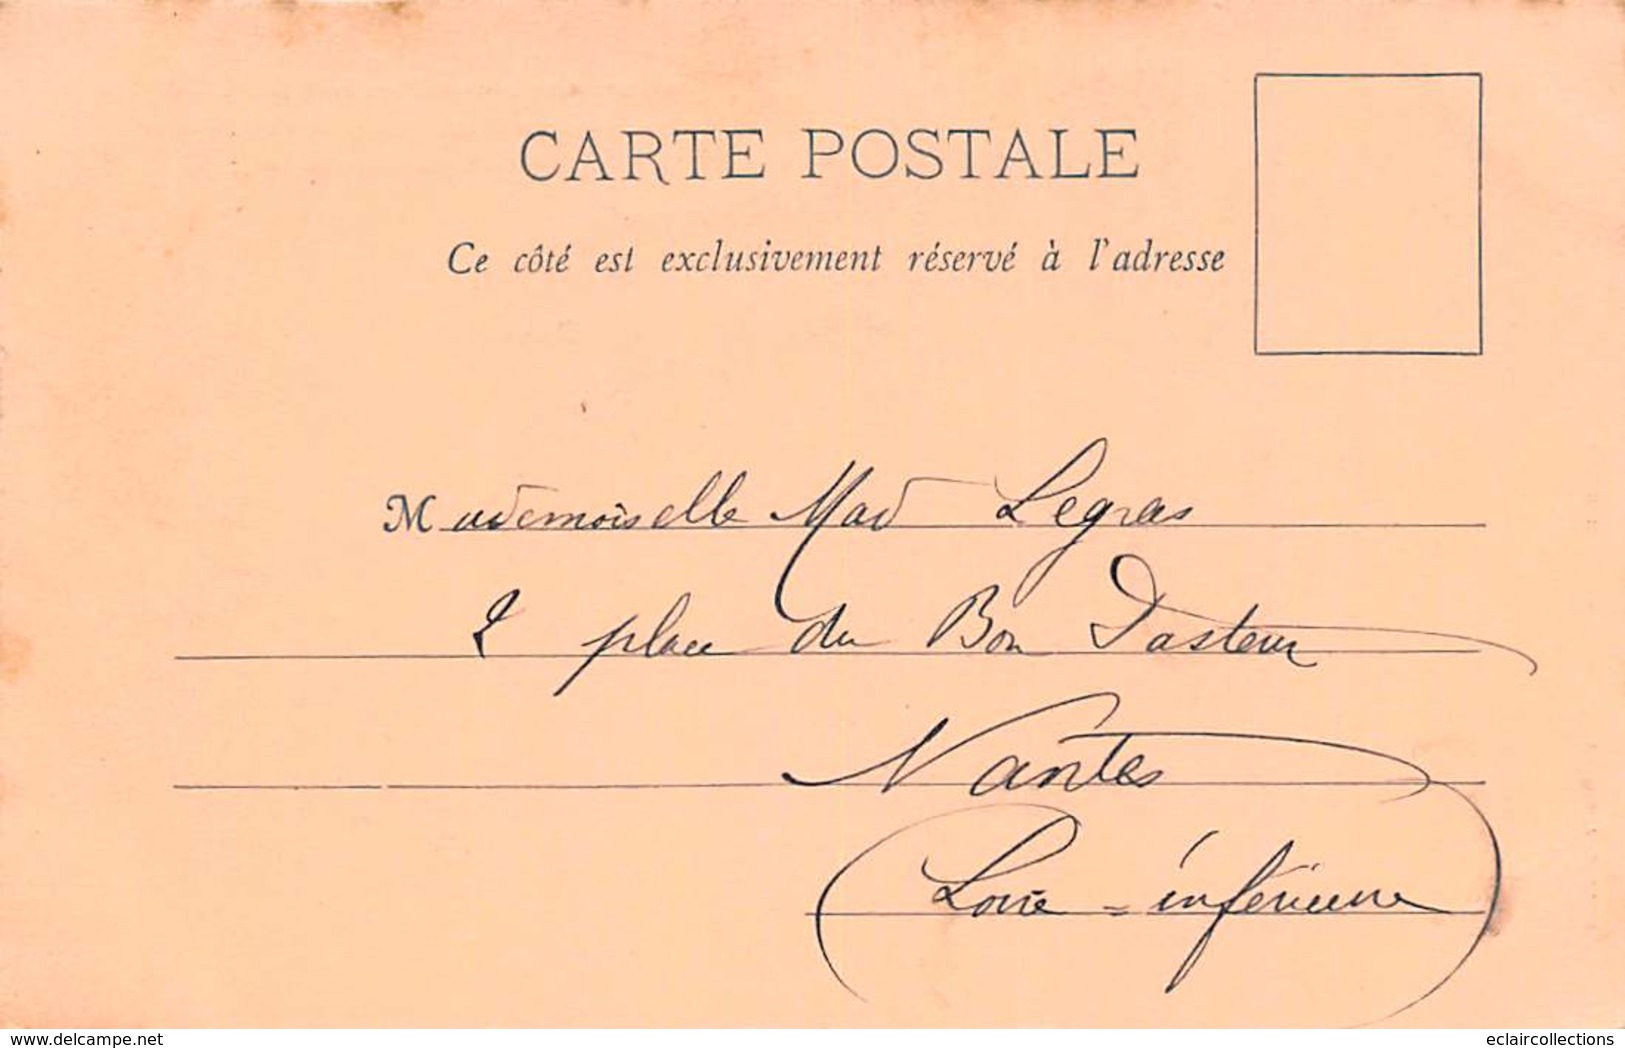 CARTE POSTALE
Ce côté est exclusivement réservé à l'adresse
Mademoiselle Mad Legras
2 place du Bon Pasteur
Nantes
Loire = inférieure
delcampe.net
eclaircollections